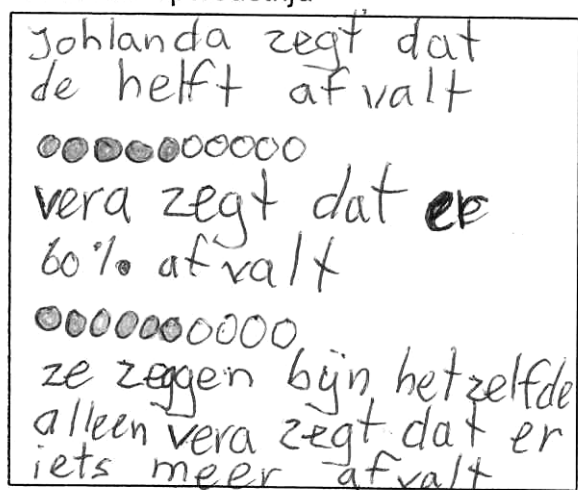 johlanda zegt dat
de helft afvalt
vera zegt dat er
60% afvalt
ze zeggen bijn hetzelfde
alleen vera zegt dat er
iets meer afvalt